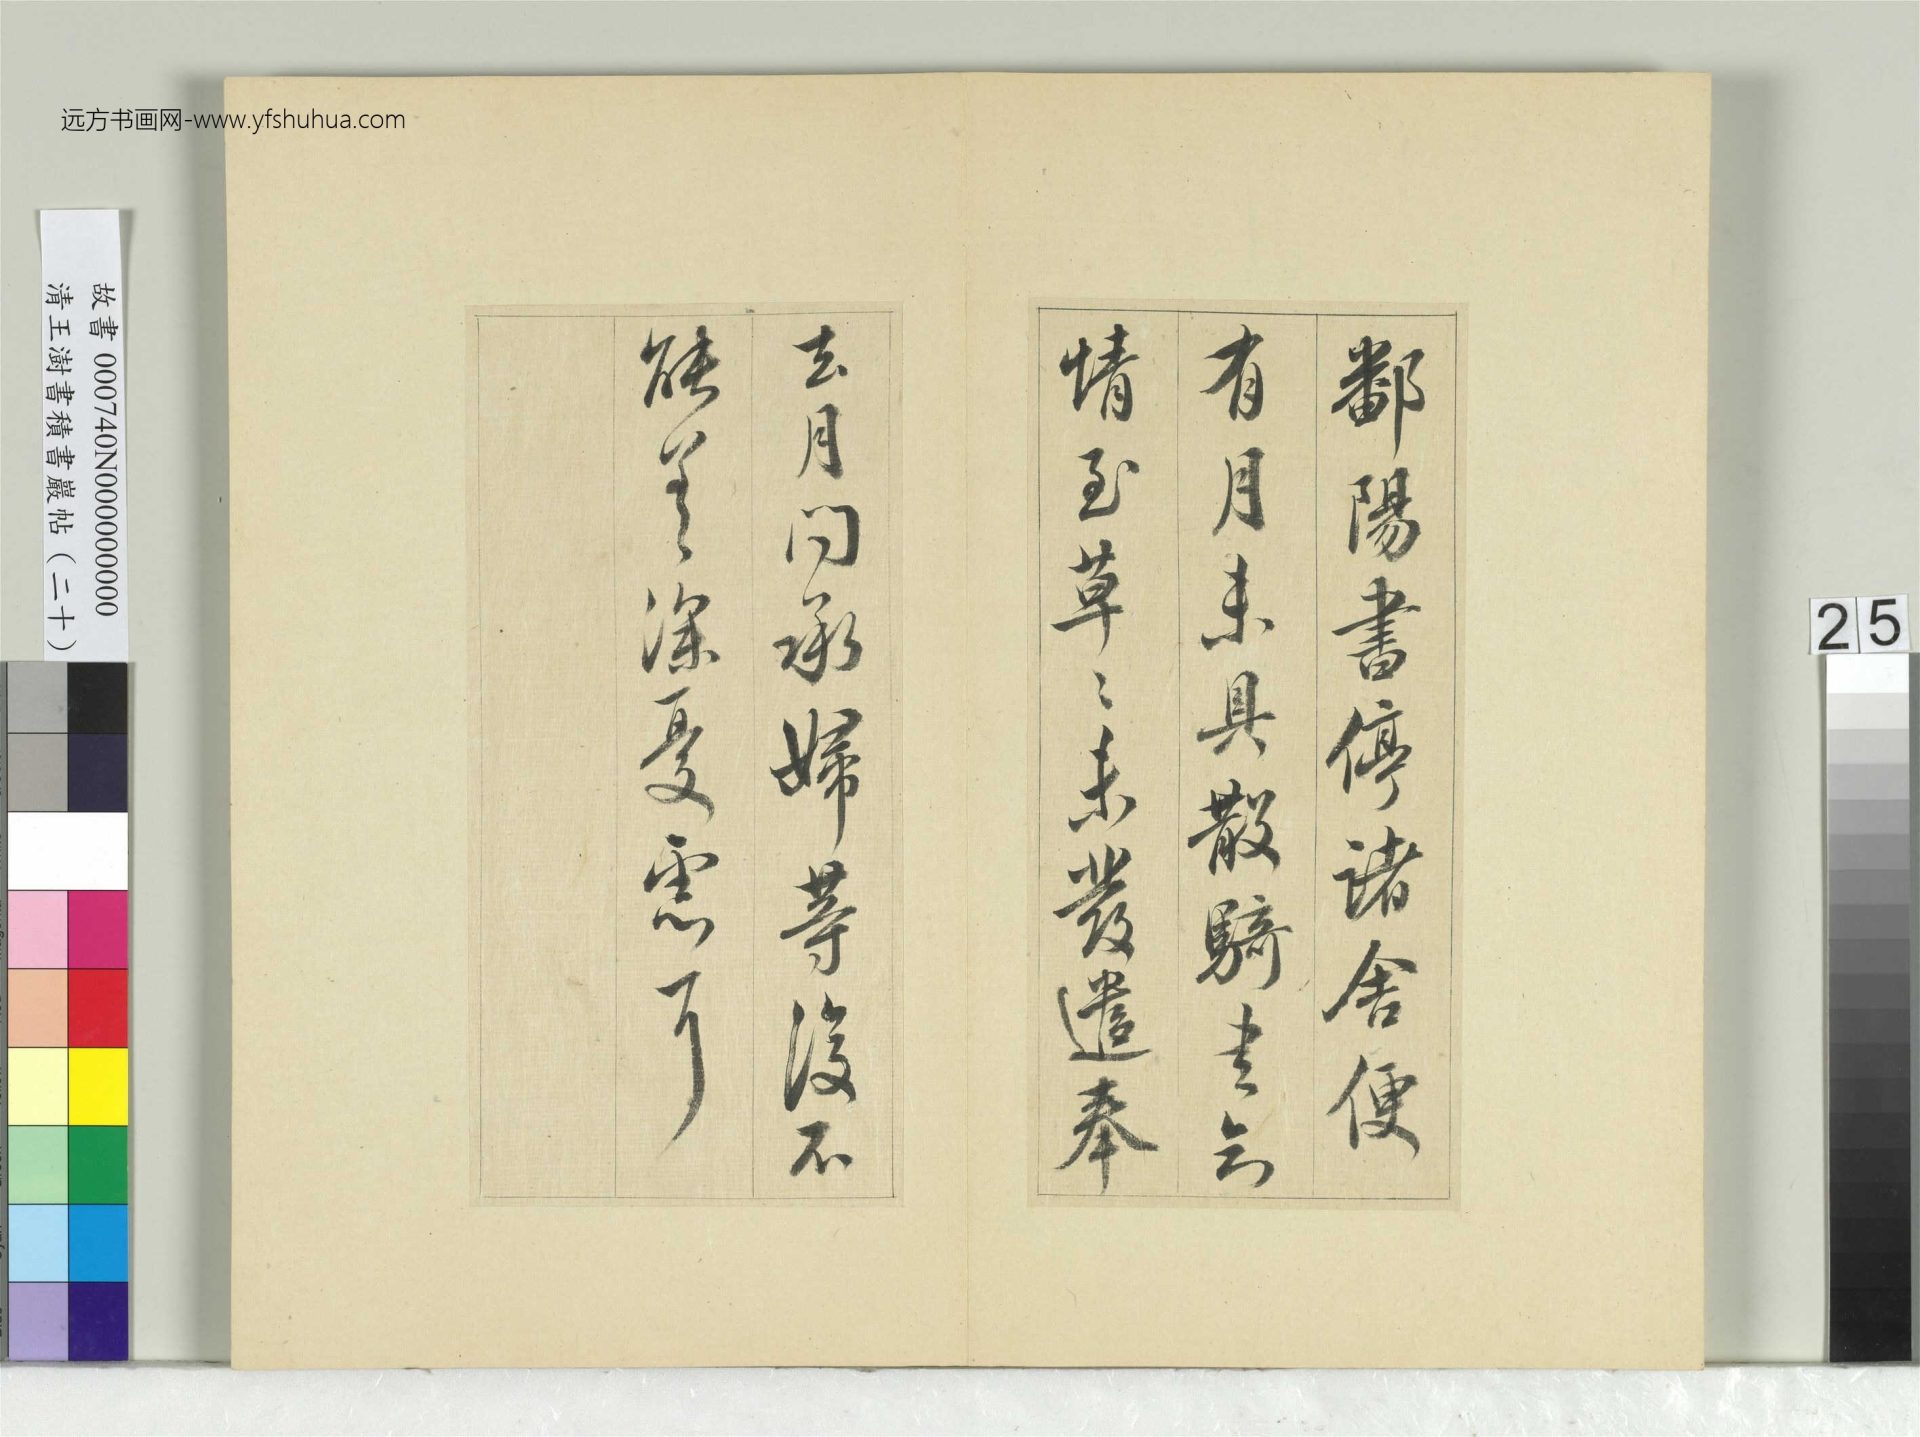 远方书画网-www.yfshuhua.com
故書 000740N000000000
清王澍書積書巖帖（二十）
25
鄱陽書停諸舍便
有月未具散騎書
情至草々未發遣奉
去月問承婦等復不
能差深憂慮耳